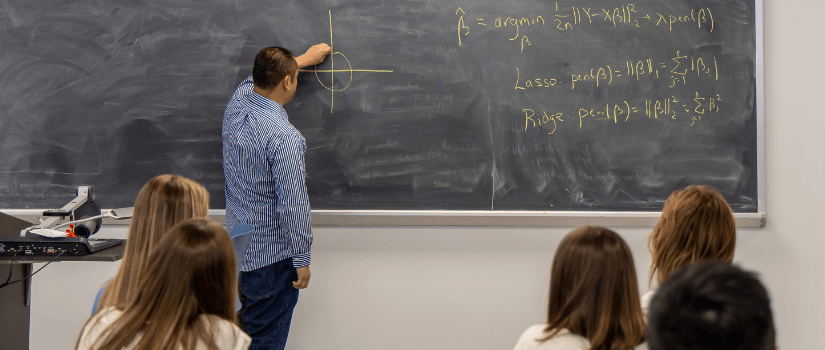 β̂ = argmin_β 1/2n ||Y - Xβ||₂² + λ pen(β)
Lasso: pen(β) = ||β||₁ = Σ |βⱼ|
Ridge: pen(β) = ||β||₂² = Σ βⱼ²